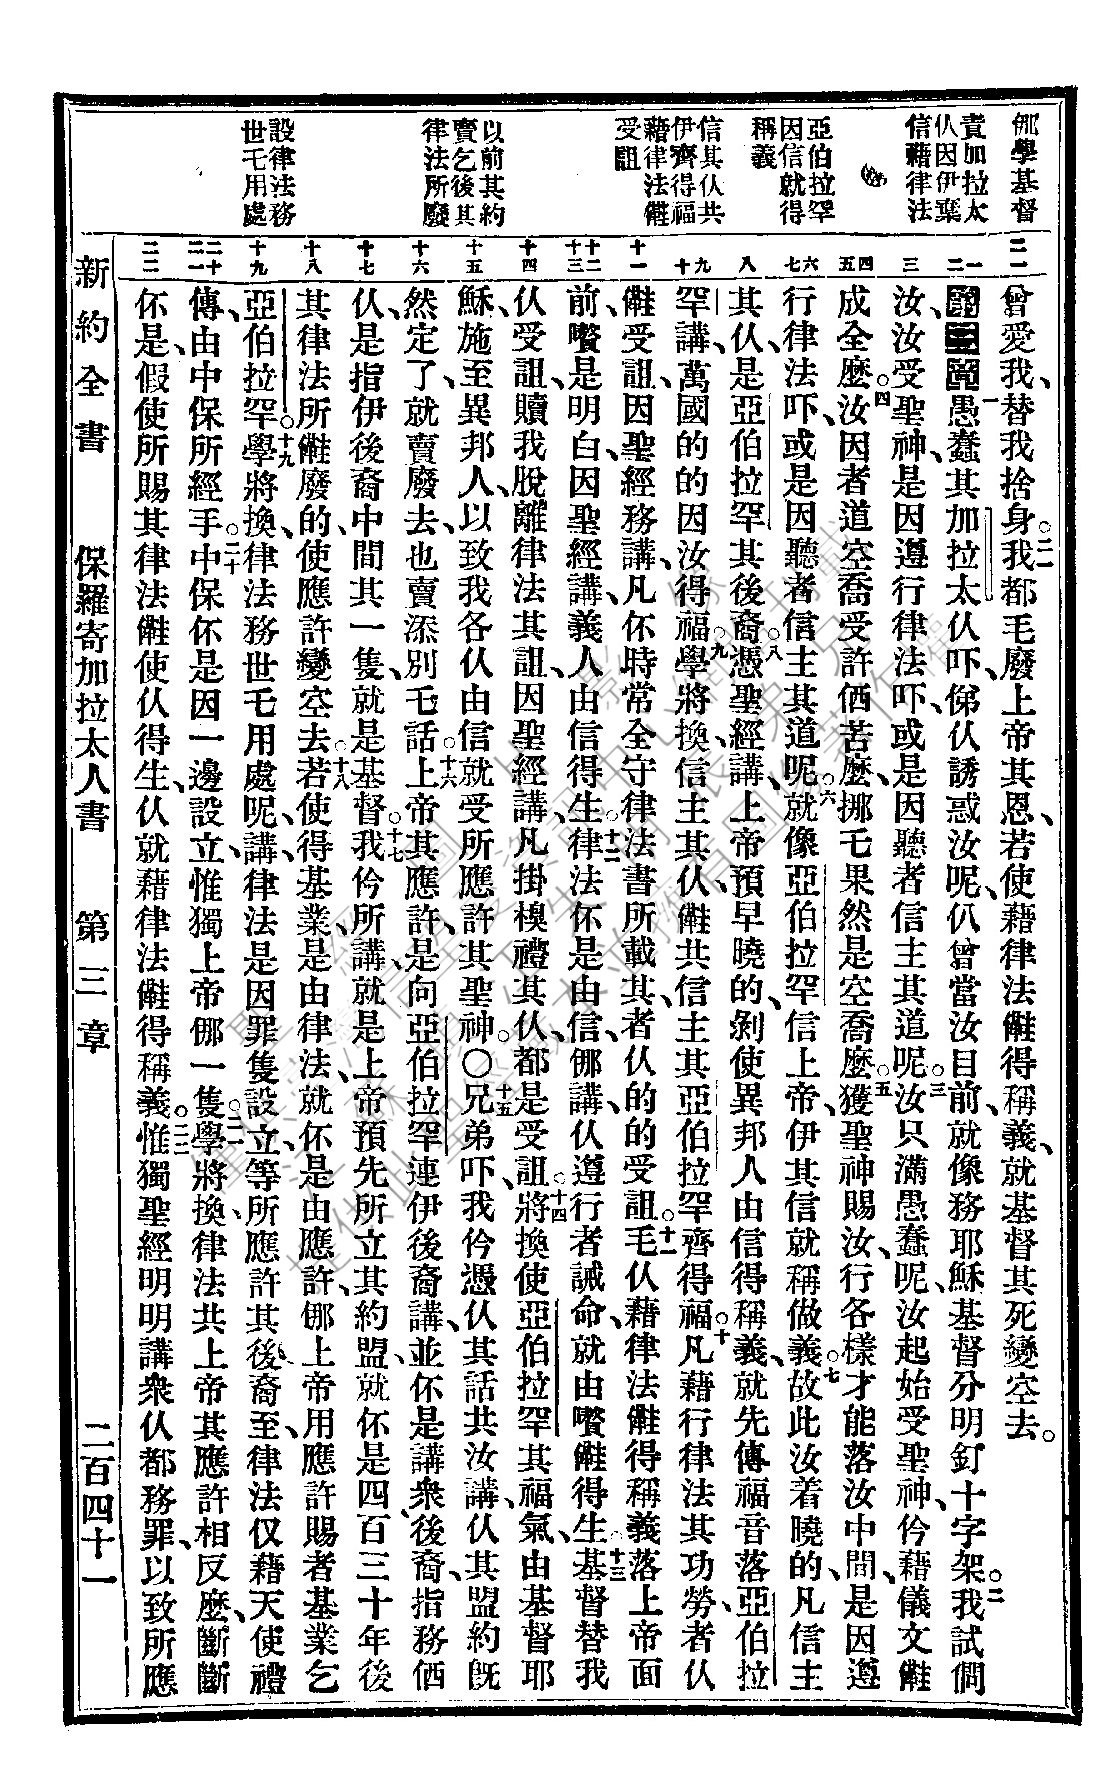 㑚學基督
責加拉太
仈因伊棄
信藉律法
亞伯拉罕
因信就得
稱義
信其仈共
伊齊得福
藉律法𣍐
受詛
以前其約
賣乞後其
律法所廢
設律法務
世乇用處
二一
一二
三
四五
六七
八
九十
十一
十二十三
十四
十五
十六
十七
十八
十九
二十二一
二二
曾愛我、替我捨身。二一我都毛廢上帝其恩、若使藉律法𣍐得稱義、就基督其死變空去。
第三章一愚蠢其加拉太仈吓、俤仈誘惑汝呢、仈曾當汝目前、就像務耶穌基督分明釘十字架。二我試問
汝、汝受聖神、是因遵行律法吓、或是因聽者信主其道呢。三汝只滿愚蠢呢、汝起始受聖神、仱藉儀文𣍐
成全麼。四汝因者道空喬受許價苦麼、挪乇果然是空喬麼。五獲聖神賜汝、行各樣才能落汝中間、是因遵
行律法吓、或是因聽者信主其道呢。六就像亞伯拉罕信上帝、伊其信就稱做義。七故此汝着曉的、凡信主
其仈、是亞伯拉罕其後裔。八憑聖經講、上帝預早曉的、剝使異邦人由信得稱義、就先傳福音落亞伯拉
罕講、萬國的的因汝得福。九學將換、信主其仈、𣍐共信主其亞伯拉罕齊得福。十凡藉行律法其功勞、者仈
𣍐受詛、因聖經務講、凡伓時常全守律法書所載其、者仈的的受詛。十一毛仈藉律法𣍐得稱義落上帝面
前、㬹是明白、因聖經講、義人由信得生。十二律法伓是由信、㑚講、仈遵行者誡命、就由㬹𣍐得生。十三基督替我
仈受詛、贖我脫離律法其詛、因聖經講、凡掛槓禮其仈、都是受詛。十四將換使亞伯拉罕其福氣、由基督耶
穌、施至異邦人、以致我各仈由信、就受所應許其聖神。〇十五兄弟吓、我仱憑仈其話共汝講、仈其盟約既
然定了、就賣廢去、也賣添別乇話。十六上帝其應許、是向亞伯拉罕連伊後裔講、並伓是講衆後裔、指務価
仈、是指伊後裔中間其一隻、就是基督。十七我仱所講、就是上帝預先所立其約盟、就伓是四百三十年後
其律法所𣍐廢的、使應許變空去。十八若使得基業、是由律法、就伓是由應許、㑚上帝用應許賜者基業乞
亞伯拉罕。十九學將換、律法務世乇用處呢、講、律法是因罪隻設立、等所應許其後裔至、律法仅藉天使禮
傳、由中保所經手。二十中保伓是因一邊設立、惟獨上帝㑚一隻。二一學將換、律法共上帝其應許相反麼、斷斷
伓是、假使所賜其律法𣍐使仈得生、仈就藉律法𣍐得稱義。二二惟獨聖經明明講衆仈都務罪、以致所應
新約全書　保羅寄加拉太人書　第三章　二百四十一